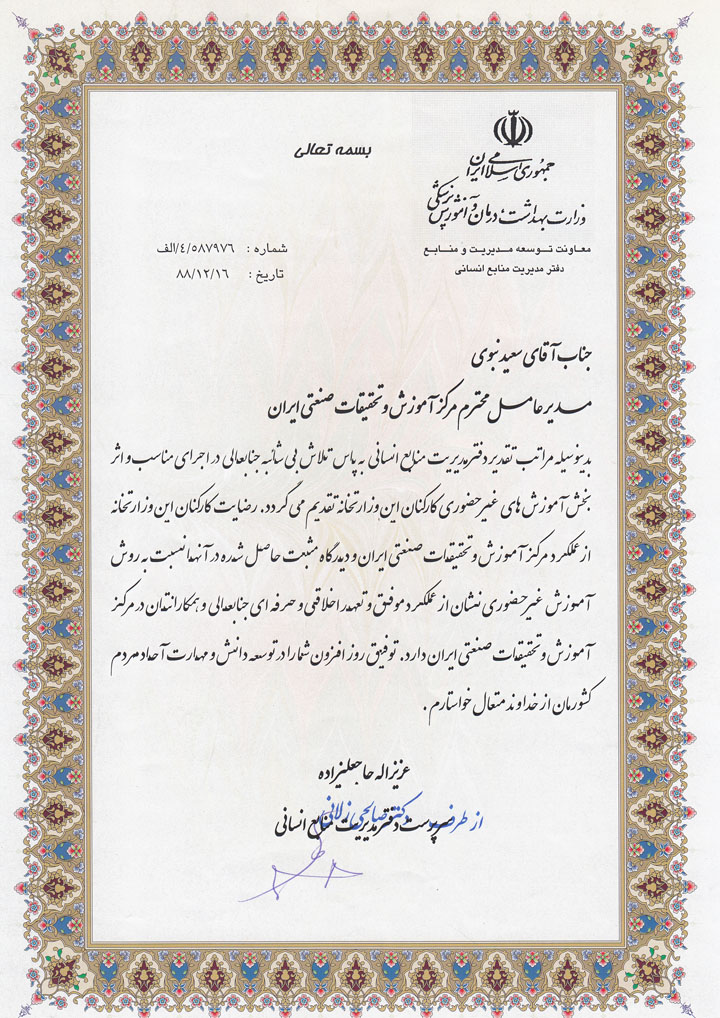 بسمه تعالی
جمهوری اسلامی ایران
وزارت بهداشت، درمان و آموزش پزشکی
معاونت توسعه مدیریت و منابع
دفتر مدیریت منابع انسانی
شماره : ۴/۵۸۷۹۷۶/الف
تاریخ : ۸۸/۱۲/۱۶
جناب آقای سعید نبوی
مدیرعامل محترم مرکز آموزش و تحقیقات صنعتی ایران
بدینوسیله مراتب تقدیر دفتر مدیریت منابع انسانی به پاس تلاش بی شائبه جنابعالی در اجرای مناسب و اثر
بخش آموزش های غیر حضوری کارکنان این وزارتخانه تقدیم می گردد. رضایت کارکنان این وزارتخانه
از عملکرد مرکز آموزش و تحقیقات صنعتی ایران و دیدگاه مثبت حاصل شده در آنها نسبت به روش
آموزش غیر حضوری نشان از عملکرد موفق و تعهد اخلاقی و حرفه ای جنابعالی و همکارانتان در مرکز
آموزش و تحقیقات صنعتی ایران دارد. توفیق روز افزون شما را در توسعه دانش و مهارت آحاد مردم
کشورمان از خداوند متعال خواستارم .
عزیزاله حاجعلیزاده
سرپرست دفتر مدیریت منابع انسانی
از طرف دکتر صالحی زلانی